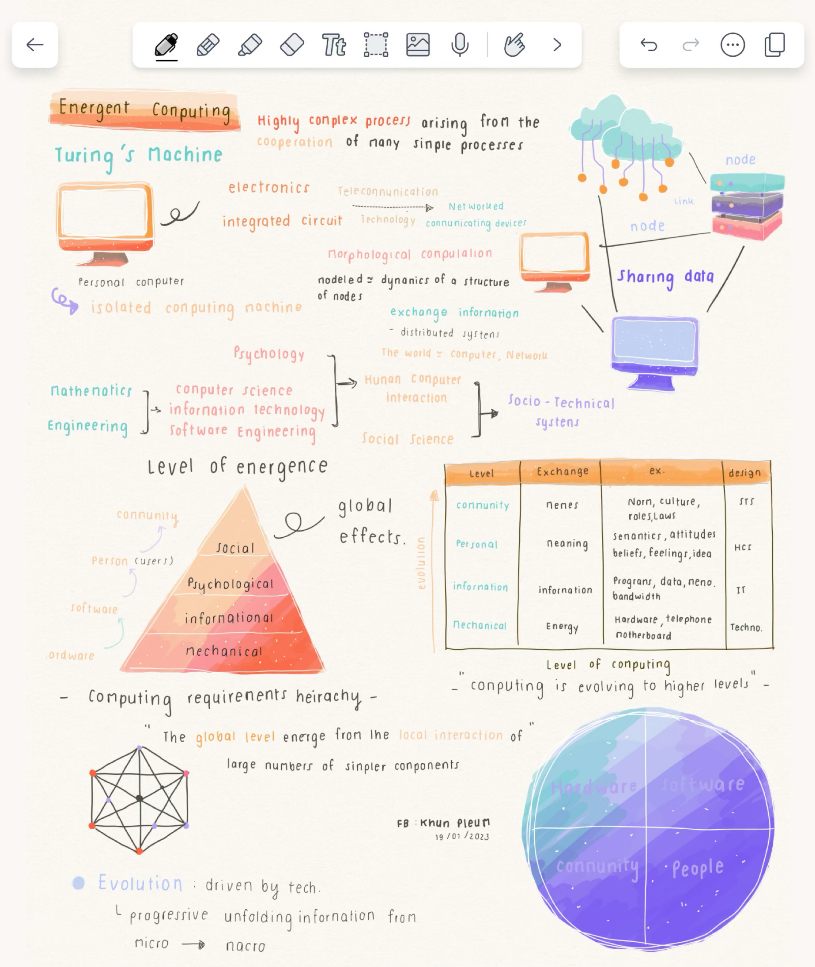 Tt
Emergent Computing
Highly complex process arising from the
cooperation of many simple processes
Turing's Machine
electronics
integrated circuit
Telecommunication
Technology
Networked
communicating devices
Personal computer
isolated computing machine
morphological compulation
modeled = dynamics of a structure
of nodes
exchange information
- distributed systems
The world = computer, Network
node
Link
node
sharing data
Psychology
Mathematics
Engineering
computer science
information technology
software Engineering
Human computer
interaction
Social Science
Socio-Technical
systems
Level of emergence
community
Person (users)
software
ardware
social
Psychological
informational
mechanical
global
effects.
- Computing requirements heirachy -
evolution
Level Exchange ex. design
community memes Norm, culture, STS
roles, Laws
Personal meaning semantics, attitudes HCS
beliefs, feelings, idea
information information Programs, data, memo. IT
bandwidth
Mechanical Energy Hardware, telephone Techno.
motherboard
Level of computing
- "computing is evolving to higher levels" -
" The global level emerge from the local interaction of "
large numbers of simpler components
FB : Khun Pleum
19/01/2023
Hardware software
community People
Evolution : driven by tech.
progressive unfolding information from
micro → macro